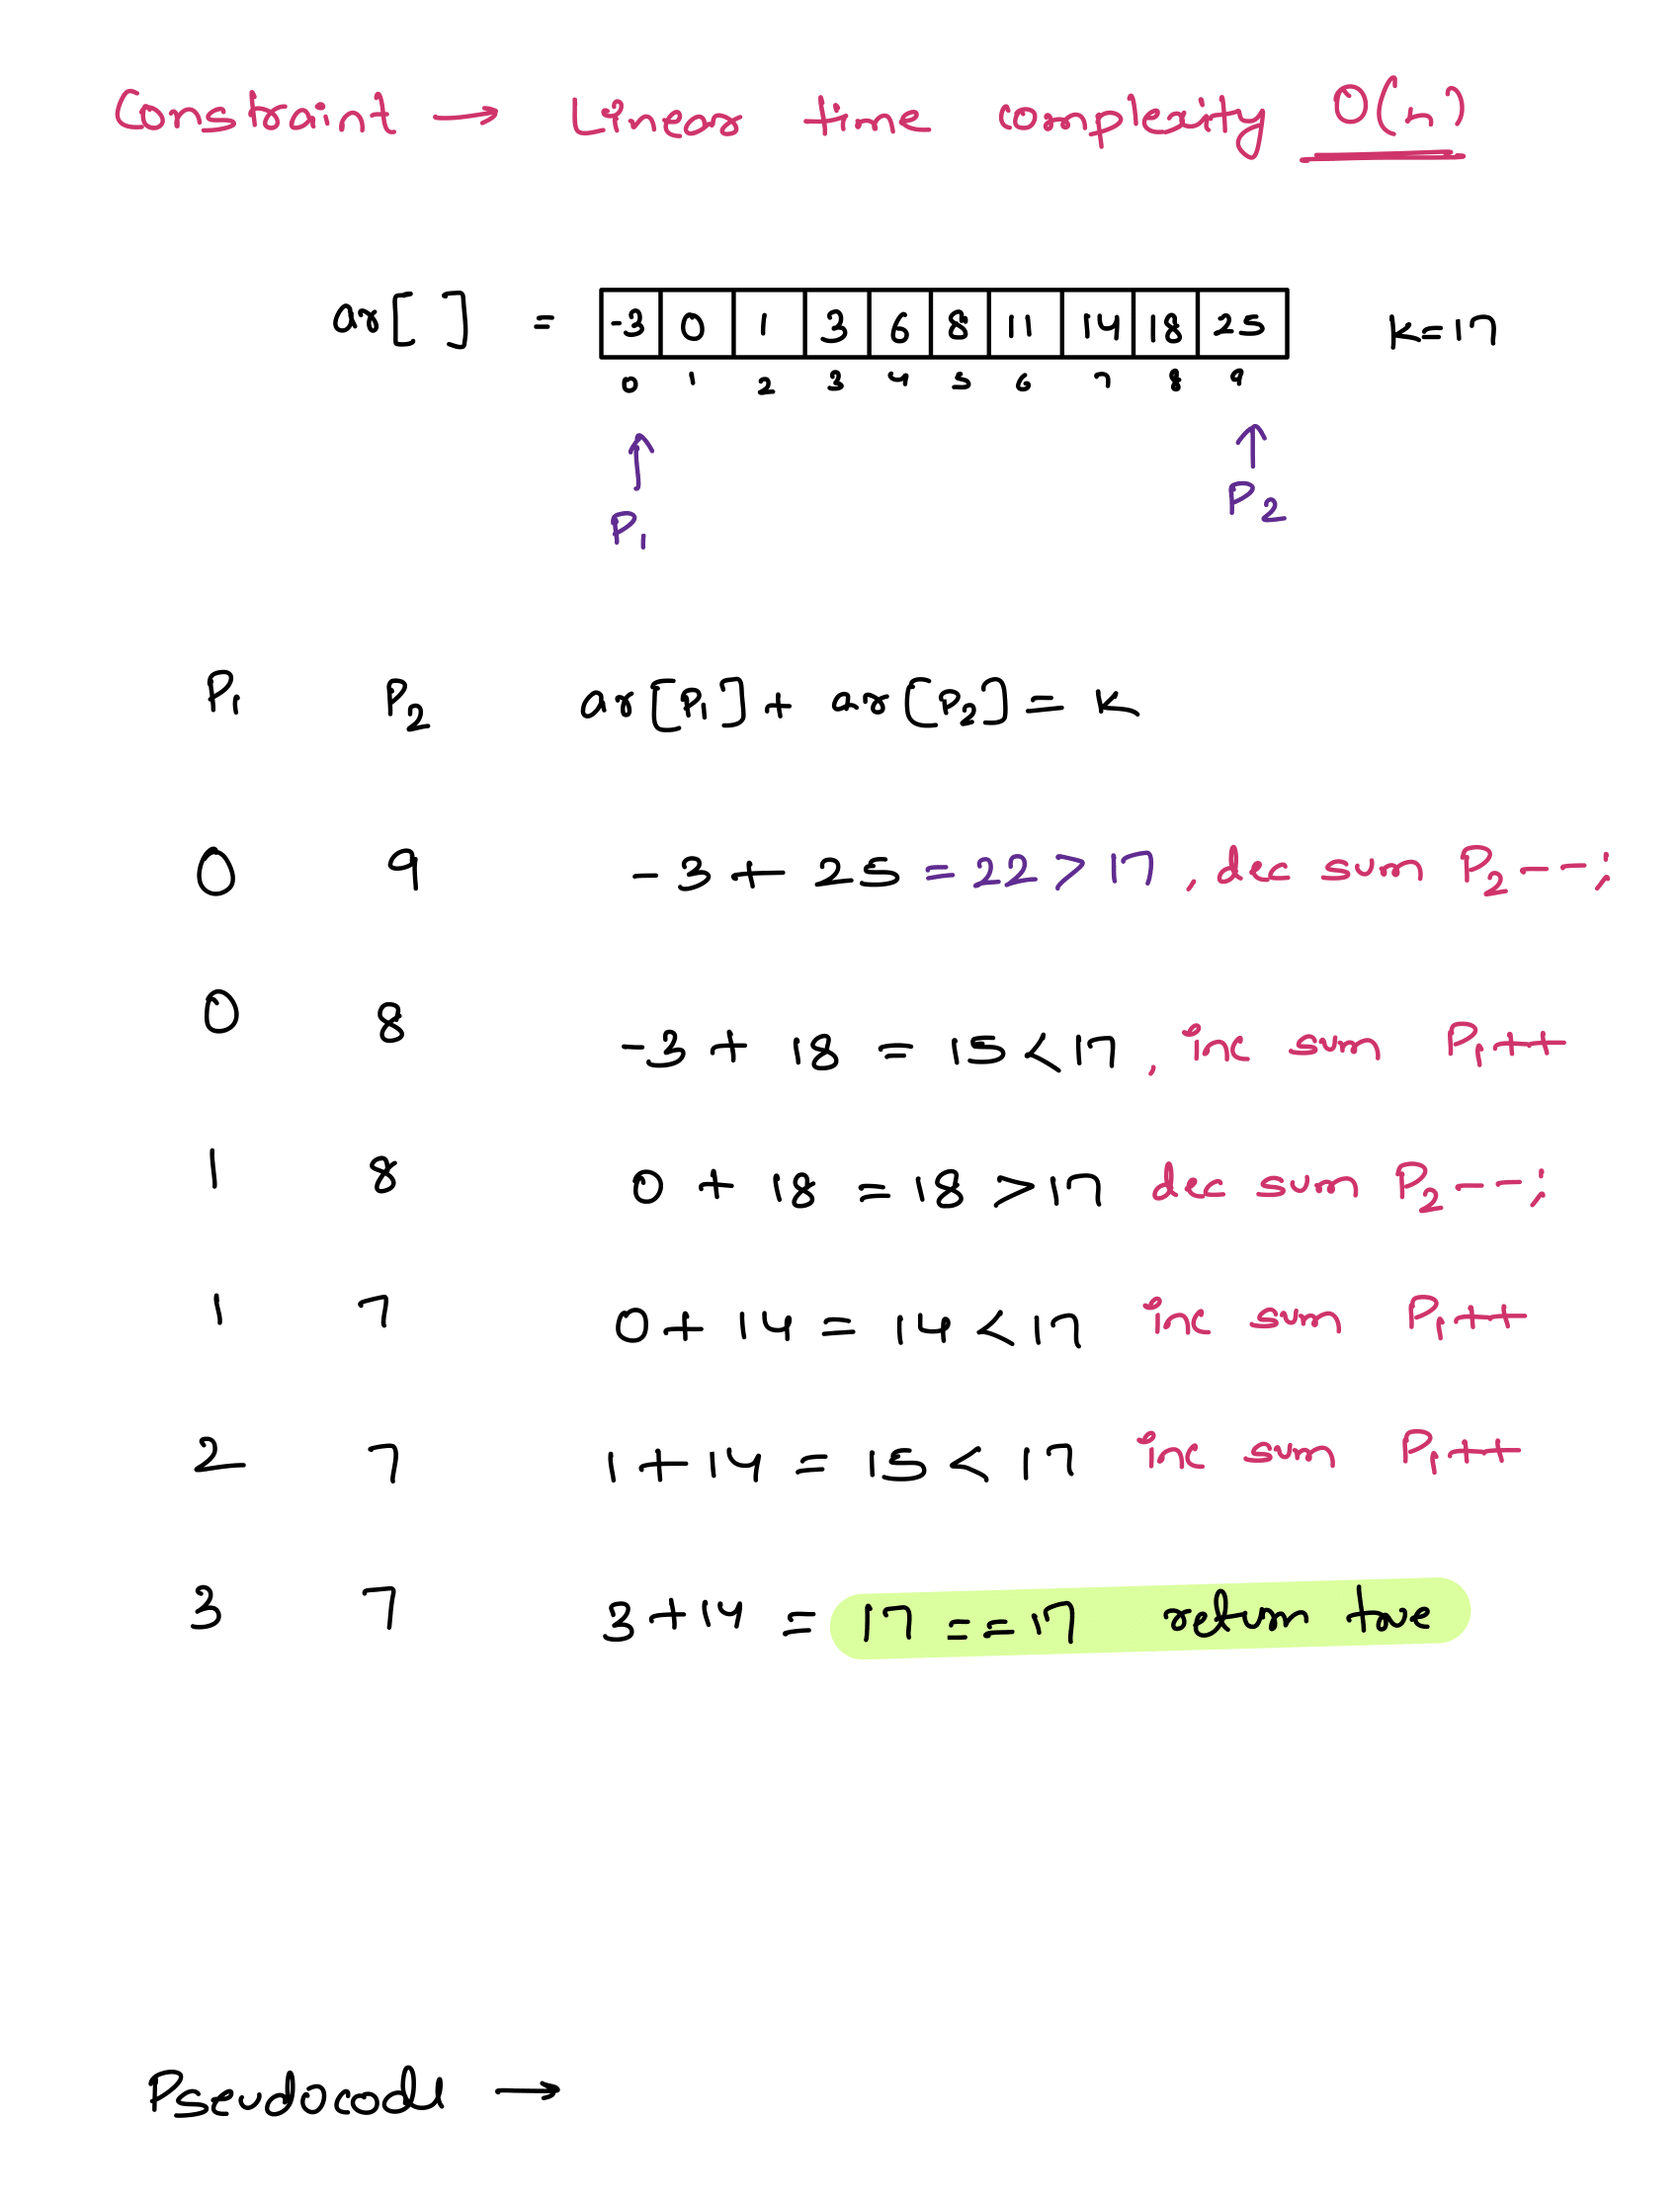 Constraint → Linear time complexity O(n)
ar[ ] = -3 0 1 3 6 8 11 14 18 25 K=17
0 1 2 3 4 5 6 7 8 9
P1 P2
P1 P2 ar[P1] + ar[P2] = K
0 9 -3 + 25 = 22 > 17 , dec sum P2--;
0 8 -3 + 18 = 15 < 17 , inc sum P1++
1 8 0 + 18 = 18 > 17 dec sum P2--;
1 7 0 + 14 = 14 < 17 inc sum P1++
2 7 1 + 14 = 15 < 17 inc sum P1++
3 7 3 + 14 = 17 == 17 return true
Pseudocode →